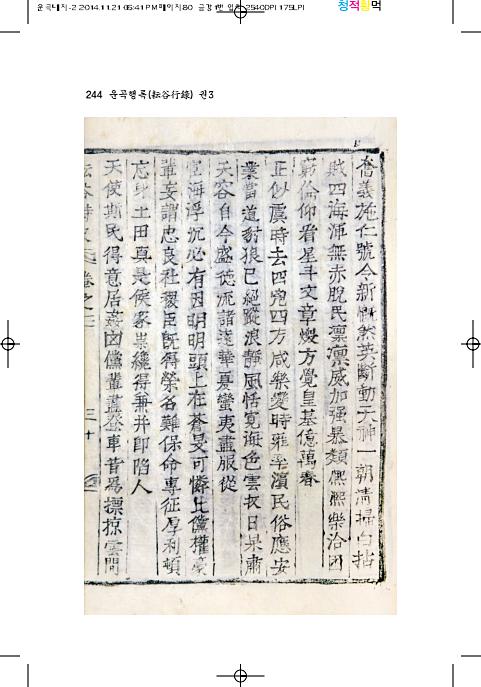 운곡대지-2 2014.11.21 05:41 PM 페이지80 2540DPI 175LPI
청적황먹
244 운곡행록(耘谷行錄) 권3
奮義施仁號令新慨然英斷動天神一朝淸掃白拈
賊四海渾無赤脫民凛凛威加强暴類熙熙樂洽困
窮倫仰看星斗文章煥方覺皇基億萬春
正似虞時去四兇四方咸樂變時雍率濱民俗應安
業當道豺狼已絕蹤浪靜風恬寬海色雲收日杲肅
天容自今盛德流諸遠華夏蠻夷盡服從
宦海浮沉必有因明明頭上在蒼旻可憐比儻權豪
輩妄謂忠良社稷臣旣得榮名難保命專征厚利頓
忘身土田眞是侯家祟纔得兼并卽陷人
天使斯民得意居姦凶儻輩盡登車昔爲摽掠雲間
耘谷詩史 卷之三 三十